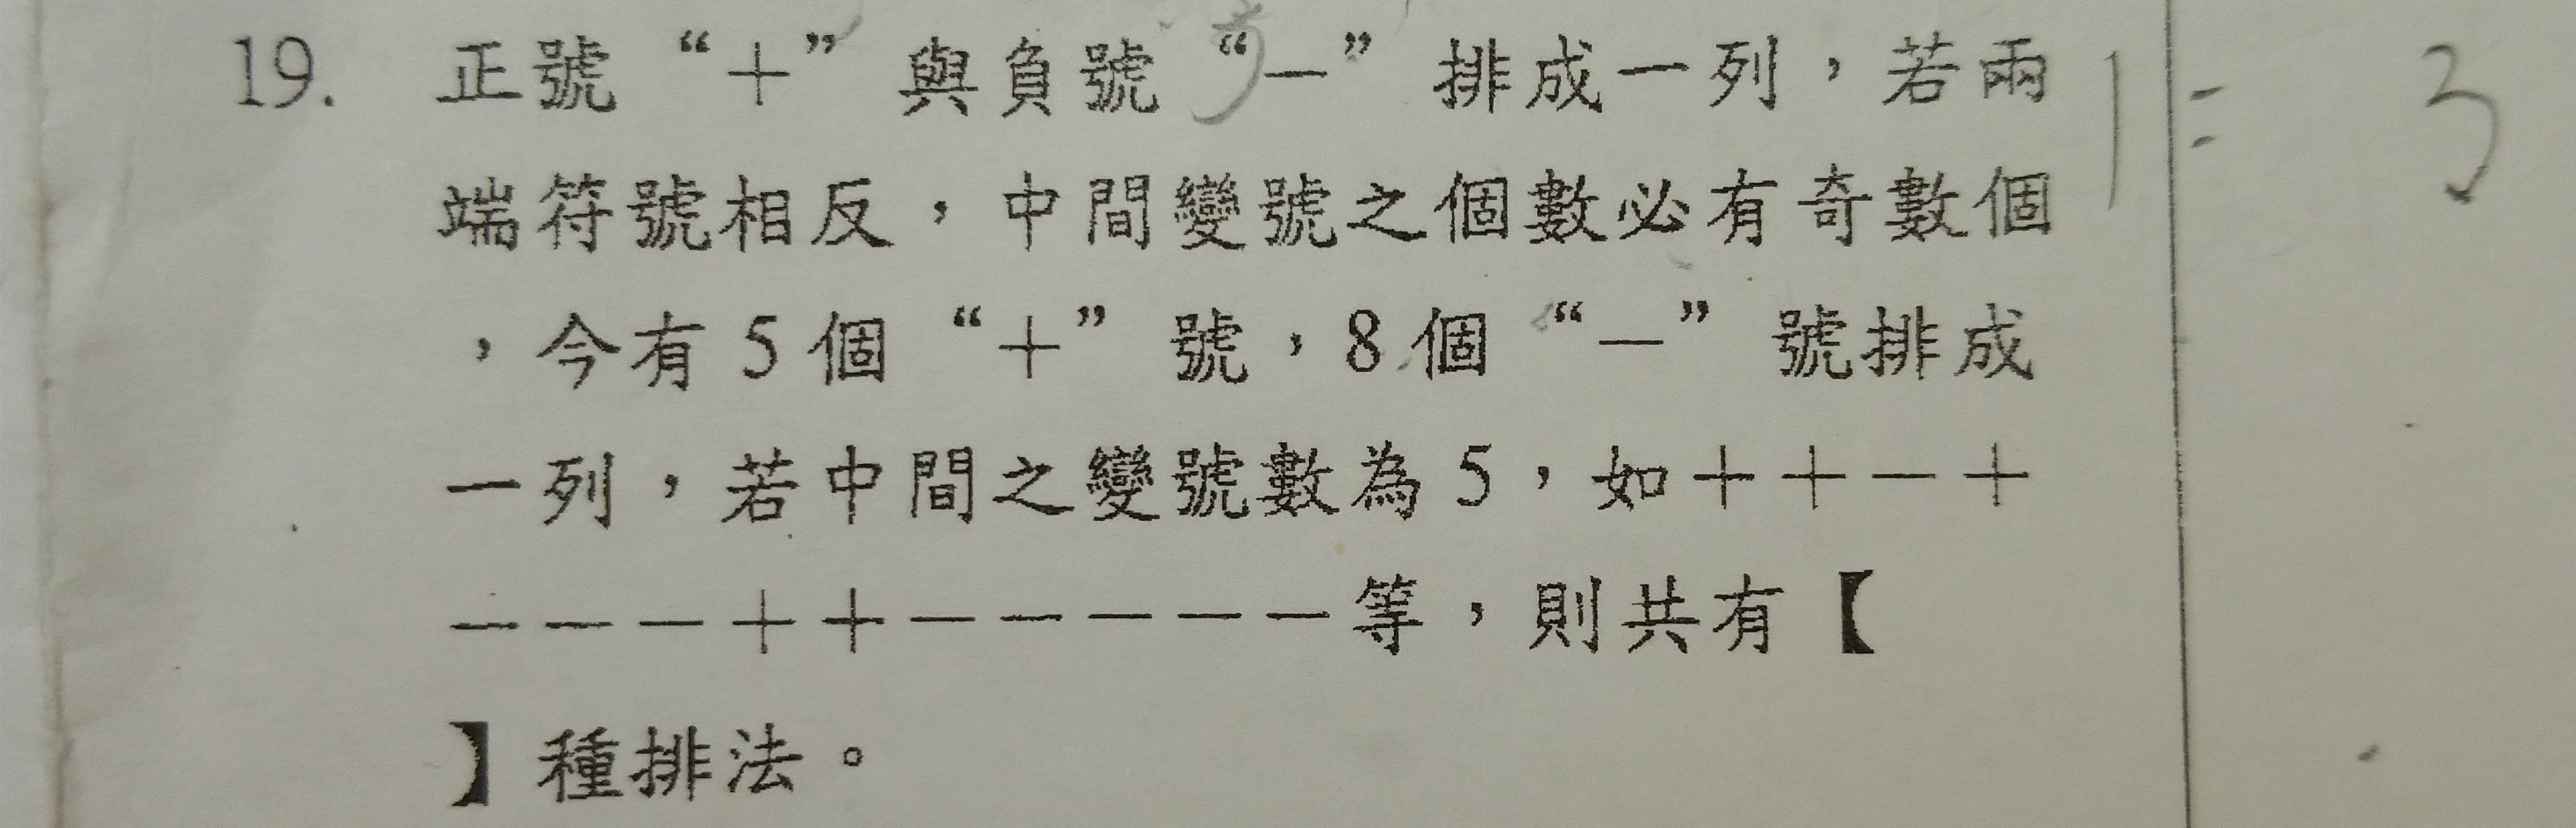 19. 正號“＋”與負號“－”排成一列，若兩
端符號相反，中間變號之個數必有奇數個
，今有5個“＋”號，8個“－”號排成
一列，若中間之變號數為5，如＋＋－＋
－－－＋＋－－－－－等，則共有【
】種排法。